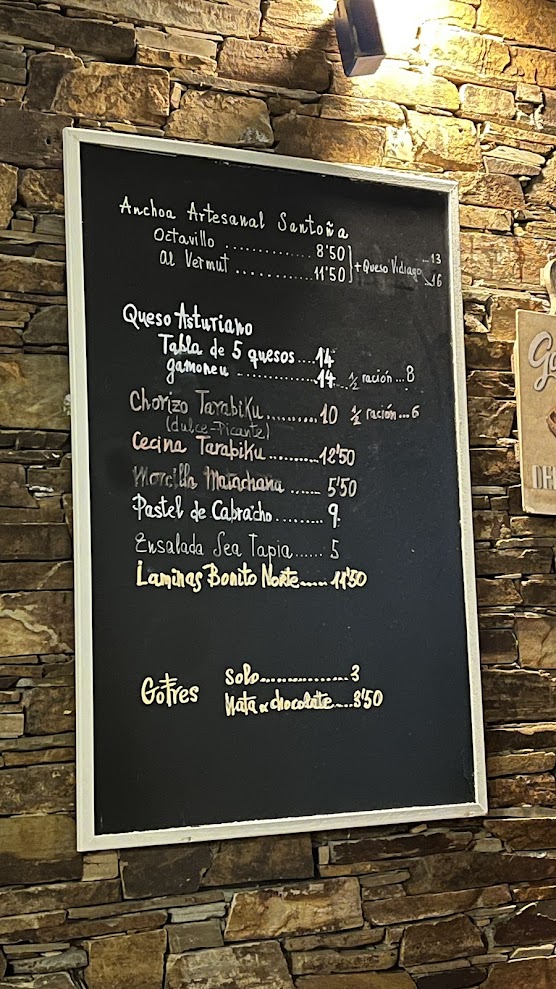 Anchoa Artesanal Santoña
Octavillo .............. 8'50
al Vermut ............ 11'50
+ Queso Vidiago
...13
...16
Queso Asturiano
Tabla de 5 quesos ... 14
gamoneu ............ 14 ... ½ ración ... 8
Chorizo Tarabiku .......... 10 ½ ración ... 6
(dulce-Picante)
Cecina Tarabiku .......... 12'50
Morcilla Matachana ...... 5'50
Pastel de Cabracho ......... 9
Ensalada Sea Tapia ...... 5
Laminas Bonito Norte ..... 11'50
Gofres
solo ................ 3
Nata o chocolate .... 3'50